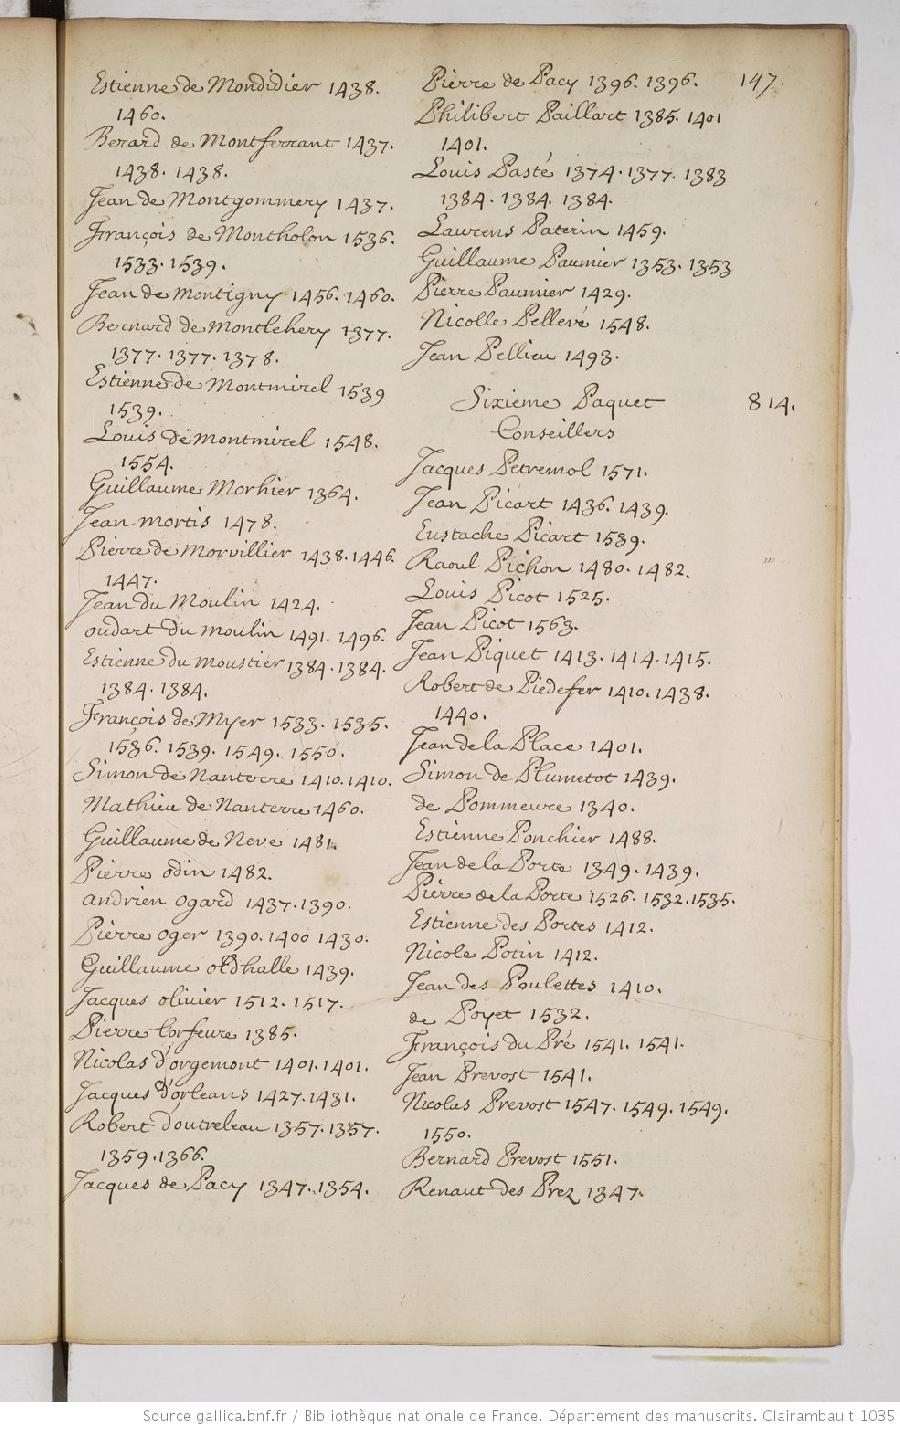 147
Estienne de Mondidier 1438.
1460.
Berard de Montferrant 1437.
1438. 1438.
Jean de Montgommery 1437.
François de Montholon 1536.
1533. 1539.
Jean de Montigny 1456. 1460.
Bernard de Montlehery 1377.
1377. 1377. 1378.
Estienne de Montmirel 1539
1539.
Louis de Montmirel 1548.
1554.
Guillaume Morhier 1364.
Jean mortis 1478.
Pierre de Morvillier 1438. 1446.
1447.
Jean du Moulin 1424.
oudart du moulin 1491. 1496.
Estienne du Moustier 1384. 1384.
1384. 1384.
François de Myer 1533. 1535.
1536. 1539. 1549. 1550.
Simon de Nanterre 1410. 1410.
Mathieu de Nanterre 1460.
Guillaume de Neve 1481.
Pierre odin 1482.
andrien ogard 1437. 1390.
Pierre oger 1390. 1400 1430.
Guillaume oldhalle 1439.
Jacques olivier 1512. 1517.
Pierre Lorfeure 1385.
Nicolas d'orgemont 1401. 1401.
Jacques d'orleans 1427. 1431.
Robert doutreleau 1357. 1357.
1359. 1366.
Jacques de Pacy 1347. 1354.
Pierre de Pacy 1396. 1396.
Philibert Paillart 1385. 1401
1401.
Louis Pasté 1374. 1377. 1383
1384. 1384. 1384.
Laurens Paterin 1459.
Guillaume Paumier 1353. 1353
Pierre Paumier 1429.
Nicolle Pellevé 1548.
Jean Pellieu 1493.
Sixieme Paquet 814.
Conseillers
Jacques Petremol 1571.
Jean Picart 1436. 1439.
Eustache Picart 1539.
Raoul Pichon 1480. 1482.
Louis Picot 1525.
Jean Picot 1563.
Jean Piquet 1413. 1414. 1415.
Robert de Piedefer 1410. 1438.
1440.
Jean de la Place 1401.
Simon de Plumetot 1439.
de Pommeure 1340.
Estienne Ponchier 1488.
Jean de la Porte 1349. 1439.
Pierre de la Porte 1526. 1532. 1535.
Estienne des Portes 1412.
Nicole Potin 1412.
Jean des Poulettes 1410.
de Poyet 1532.
François du Pré 1541. 1541.
Jean Prevost 1541.
Nicolas Prevost 1547. 1549. 1549.
1550.
Bernard Prevost 1551.
Renaut des Prez 1347.
Source gallica.bnf.fr / Bibliothèque nationale de France. Département des manuscrits. Clairambault 1035